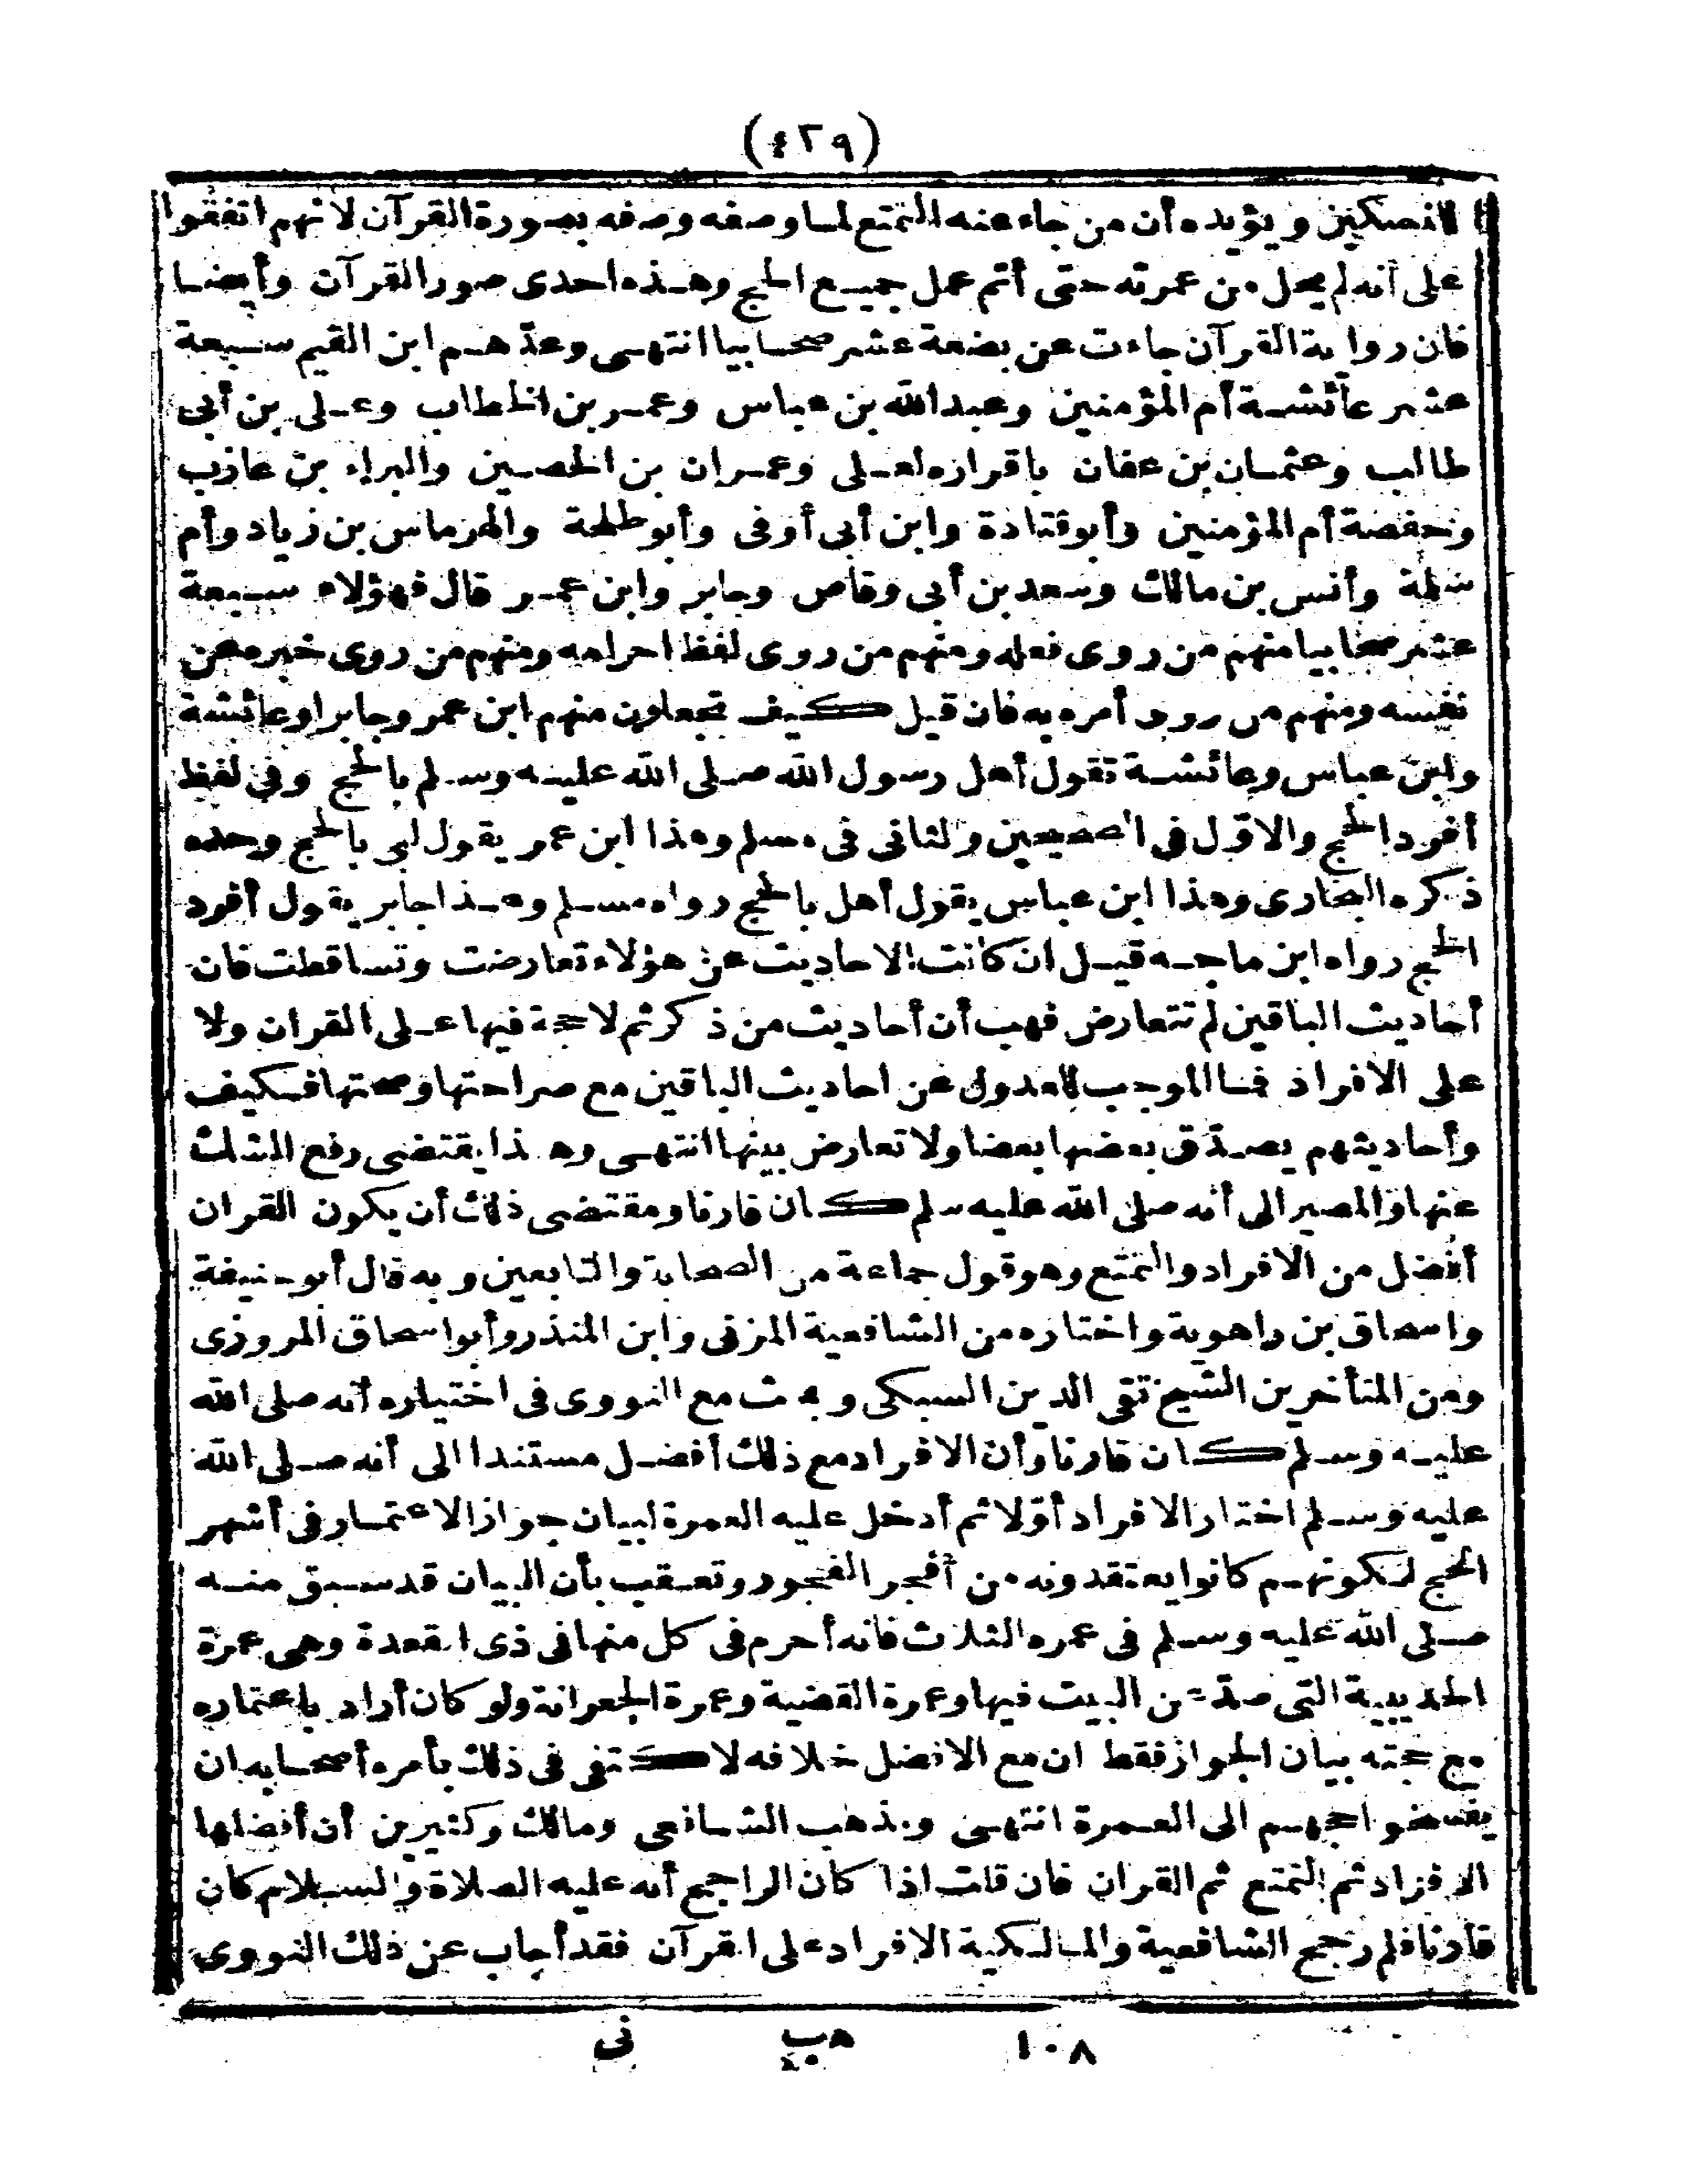 (٤٢٩)
للنسكين ويؤيده أن من جاء عنه التمتع لما وصفه وصفه بصورة القرآن لانهم اتفقوا
على أنه لم يحل من عمرته حتى أتم عمل جميع الحج وهذه احدى صور القرآن وأيضا
فان رواية القرآن جاءت عن بضعة عشر صحابيا انتهى وعدّهم ابن القيم سبعة
عشر عائشة أم المؤمنين وعبد الله بن عباس وعمر بن الخطاب وعلى بن أبى
طالب وعثمان بن عفان باقراره لعلى وعمران بن الحصين والبراء بن عازب
وحفصة أم المؤمنين وأبو قتادة وابن أبى أوفى وأبو طلحة والهرماس بن زياد وأم
سلمة وأنس بن مالك وسعد بن أبى وقاص وجابر وابن عمر قال فهؤلاء سبعة
عشر صحابيا منهم من روى فعله ومنهم من روى لفظ احرامه ومنهم من روى خبره عن
نفسه ومنهم من روى أمره به فان قيل كيف تجعلون منهم ابن عمر وجابرا وعائشة
وابن عباس وعائشة تقول أهل رسول الله صلى الله عليه وسلم بالحج وفى لفظ
أفرد الحج والاوّل فى الصحيحين والثانى فى مسلم وهذا ابن عمر يقول لبى بالحج وحده
ذكره البخارى وهذا ابن عباس يقول أهل بالحج رواه مسلم وهذا جابر يقول أفرد
الحج رواه ابن ماجه قيل ان كانت الاحاديث عن هؤلاء تعارضت وتساقطت فان
أحاديث الباقين لم تتعارض فهب أن أحاديث من ذكرتم لا حجة فيها على القران ولا
على الافراد فما الموجب للعدول عن احاديث الباقين مع صراحتها وصحتها فكيف
وأحاديثهم يصدّق بعضها بعضا ولا تعارض بينها انتهى وهذا يقتضى رفع الشك
عنها والمصير الى أنه صلى الله عليه سلم كان قارنا ومقتضى ذلك أن يكون القران
أفضل من الافراد والتمتع وهو قول جماعة من الصحابة والتابعين وبه قال أبو حنيفة
واسحاق بن راهوية واختاره من الشافعية المزنى وابن المنذر وأبو اسحاق المروزى
ومن المتأخرين الشيخ تقى الدين السبكى وبحث مع النووى فى اختياره أنه صلى الله
عليه وسلم كان قارنا وأن الافراد مع ذلك أفضل مستندا الى أنه صلى الله
عليه وسلم اختار الافراد أوّلا ثم أدخل عليه العمرة لبيان جواز الاعتمار فى أشهر
الحج لكونهم كانوا يعتقدونه من أفجر الفجور وتعقب بأن البيان قد سبق منه
صلى الله عليه وسلم فى عمره الثلاث فانه أحرم فى كل منها فى ذى القعدة وهى عمرة
الحديبية التى صدّ عن البيت فيها وعمرة القضية وعمرة الجعرانة ولو كان أراد باعتماره
مع حجته بيان الجواز فقط ان مع الافضل خلافه لاكتفى فى ذلك بأمره أصحابه ان
يفسخوا حجهم الى العمرة انتهى ومذهب الشافعى ومالك وكثيرين أن أفضلها
الافراد ثم التمتع ثم القران فان قلت اذا كان الراجح أنه عليه الصلاة والسلام كان
قارنا فلم رجح الشافعية والمالكية الافراد على القرآن فقد أجاب عن ذلك النووى
١٠٨ هب نى